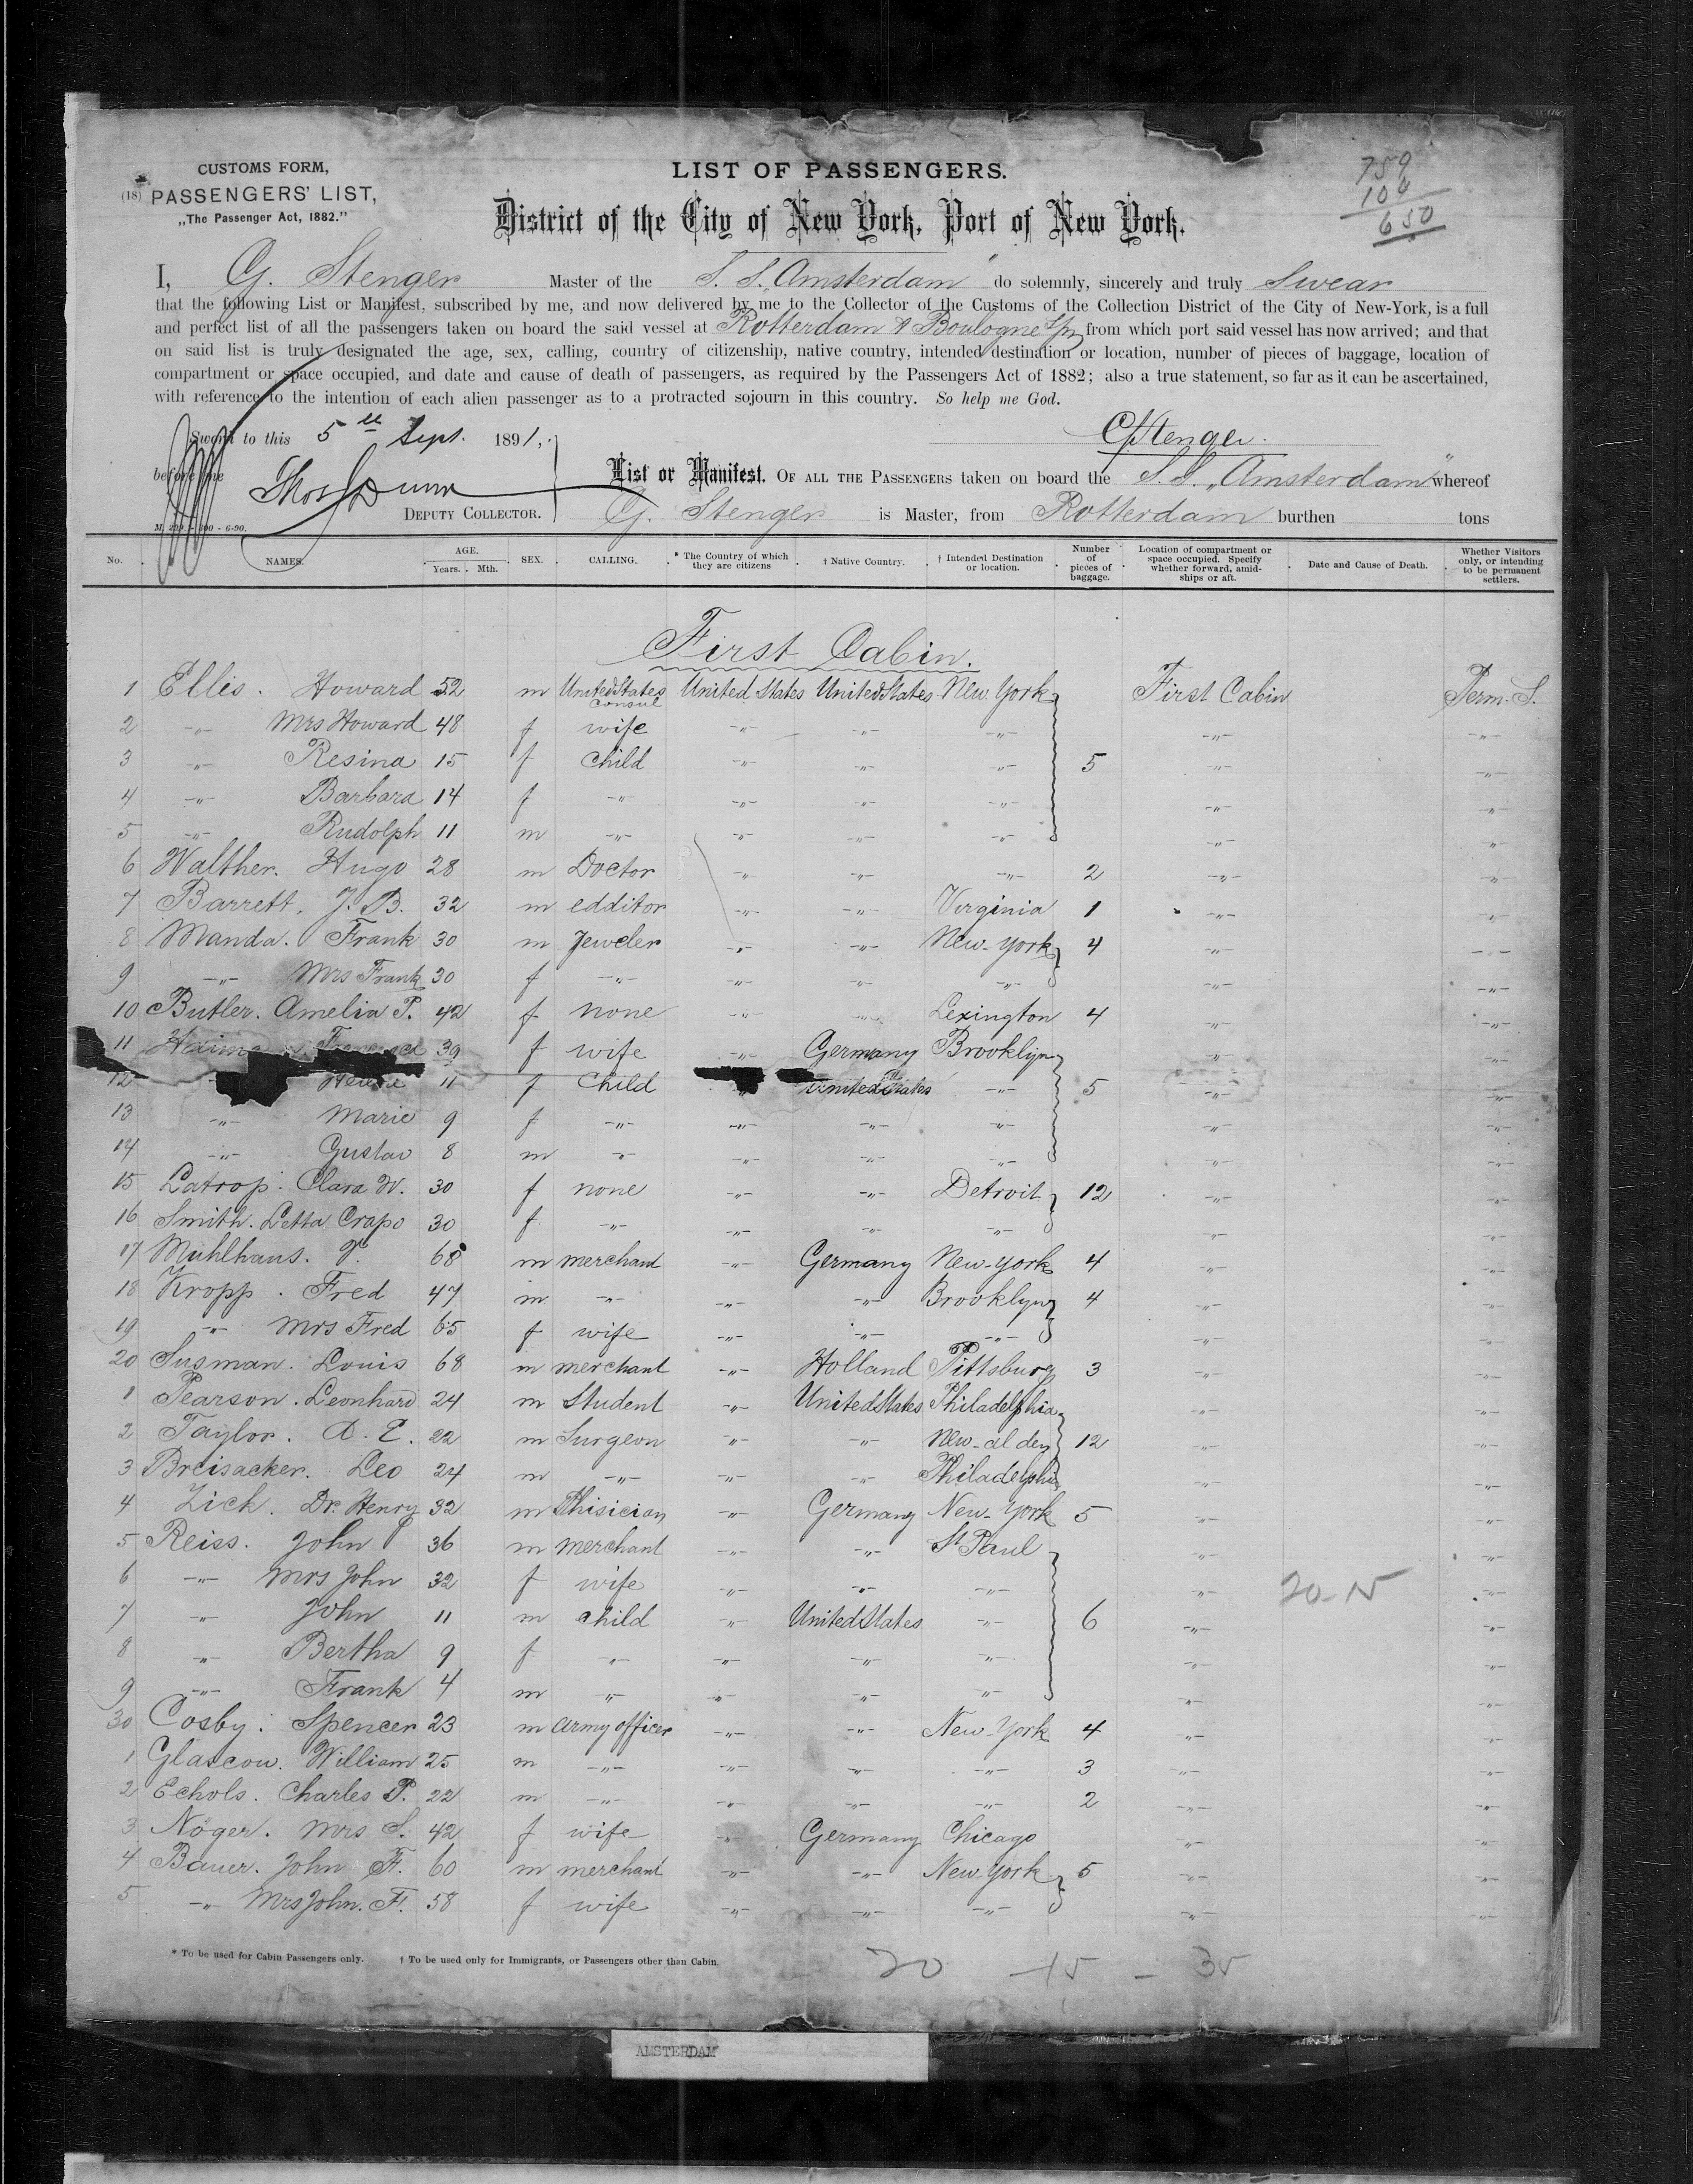 CUSTOMS FORM,
(18) PASSENGERS' LIST,
„The Passenger Act, 1882."
LIST OF PASSENGERS.
District of the City of New York, Port of New York.
759
100
650
I, G. Stenger Master of the S. S. „Amsterdam" do solemnly, sincerely and truly Swear
that the following List or Manifest, subscribed by me, and now delivered by me to the Collector of the Customs of the Collection District of the City of New-York, is a full
and perfect list of all the passengers taken on board the said vessel at Rotterdam & Boulogne s/m from which port said vessel has now arrived; and that
on said list is truly designated the age, sex, calling, country of citizenship, native country, intended destination or location, number of pieces of baggage, location of
compartment or space occupied, and date and cause of death of passengers, as required by the Passengers Act of 1882; also a true statement, so far as it can be ascertained,
with reference to the intention of each alien passenger as to a protracted sojourn in this country. So help me God.
Sworn to this 5th Sept. 1891,
G Stenger.
before me
Thos Dunn
DEPUTY COLLECTOR.
List or Manifest. OF ALL THE PASSENGERS taken on board the S. S. „Amsterdam" whereof
G. Stenger is Master, from Rotterdam burthen tons
No. NAMES. AGE. Years. Mth. SEX. CALLING. * The Country of which they are citizens † Native Country. † Intended Destination or location. Number of pieces of baggage. Location of compartment or space occupied. Specify whether forward, amidships or aft. Date and Cause of Death. Whether Visitors only, or intending to be permanent settlers.
First Cabin.
1 Ellis. Howard 52 m United States Consul United States United States New York First Cabin Perm. S.
2 -"- Mrs Howard 48 f wife -"- -"- -"- -"- -"-
3 -"- Resina 15 f child -"- -"- -"- 5 -"- -"-
4 -"- Barbara 14 f -"- -"- -"- -"- -"- -"-
5 -"- Rudolph 11 m -"- -"- -"- -"- -"- -"-
6 Walther. Hugo 28 m Doctor -"- -"- -"- 2 -"- -"-
7 Barrett. J. B. 32 m edditor -"- -"- Virginia 1 -"- -"-
8 Manda. Frank 30 m Jeweler -"- -"- New-York 4 -"- -"-
9 -"- Mrs Frank 30 f -"- -"- -"- -"- -"- -"-
10 Butler. Amelia P. 42 f none -"- -"- Lexington 4 -"- -"-
11 39 f wife -"- Germany Brooklyn -"- -"-
12 Helene 11 f child -"- United States -"- 5 -"- -"-
13 -"- Marie 9 f -"- -"- -"- -"- -"- -"-
14 -"- Gustav 8 m -"- -"- -"- -"- -"- -"-
15 Latrop. Clara W. 30 f none -"- -"- Detroit 12 -"- -"-
16 Smith. Letta Crapo 30 f -"- -"- -"- -"- -"- -"-
17 Mühlhaus. V. 68 m merchant -"- Germany New-York 4 -"- -"-
18 Kropp. Fred 47 m -"- -"- -"- Brooklyn 4 -"- -"-
19 -"- Mrs Fred 65 f wife -"- -"- -"- -"- -"-
20 Susman. Louis 68 m merchant -"- Holland Pittsburg 3 -"- -"-
1 Pearson. Leonhard 24 m Student -"- United States Philadelphia -"- -"-
2 Taylor. A. E. 22 m Surgeon -"- -"- 12 -"- -"-
3 Breisacker. Leo 24 m -"- -"- -"- Philadelphia -"- -"-
4 Zick. Dr. Henry 32 m Phisician -"- Germany New-York 5 -"- -"-
5 Reiss. John 36 m merchant -"- -"- St Paul -"- -"-
6 -"- Mrs John 32 f wife -"- -"- -"- -"- 20-15 -"-
7 -"- John 11 m child -"- United States -"- 6 -"- -"-
8 -"- Bertha 9 f -"- -"- -"- -"- -"- -"-
9 -"- Frank 4 m -"- -"- -"- -"- -"- -"-
30 Cosby. Spencer 23 m army officer -"- -"- New-York 4 -"- -"-
1 Glascow. William 25 m -"- -"- -"- -"- 3 -"- -"-
2 Echols. Charles P. 22 m -"- -"- -"- -"- 2 -"- -"-
3 Nöger. Mrs S. 42 f wife -"- Germany Chicago -"- -"-
4 Bauer. John F. 60 m merchant -"- -"- New-York 5 -"- -"-
5 -"- Mrs John. F. 58 f wife -"- -"- -"- -"- -"-
* To be used for Cabin Passengers only. † To be used only for Immigrants, or Passengers other than Cabin.
20 - 15 - 35
AMSTERDAM